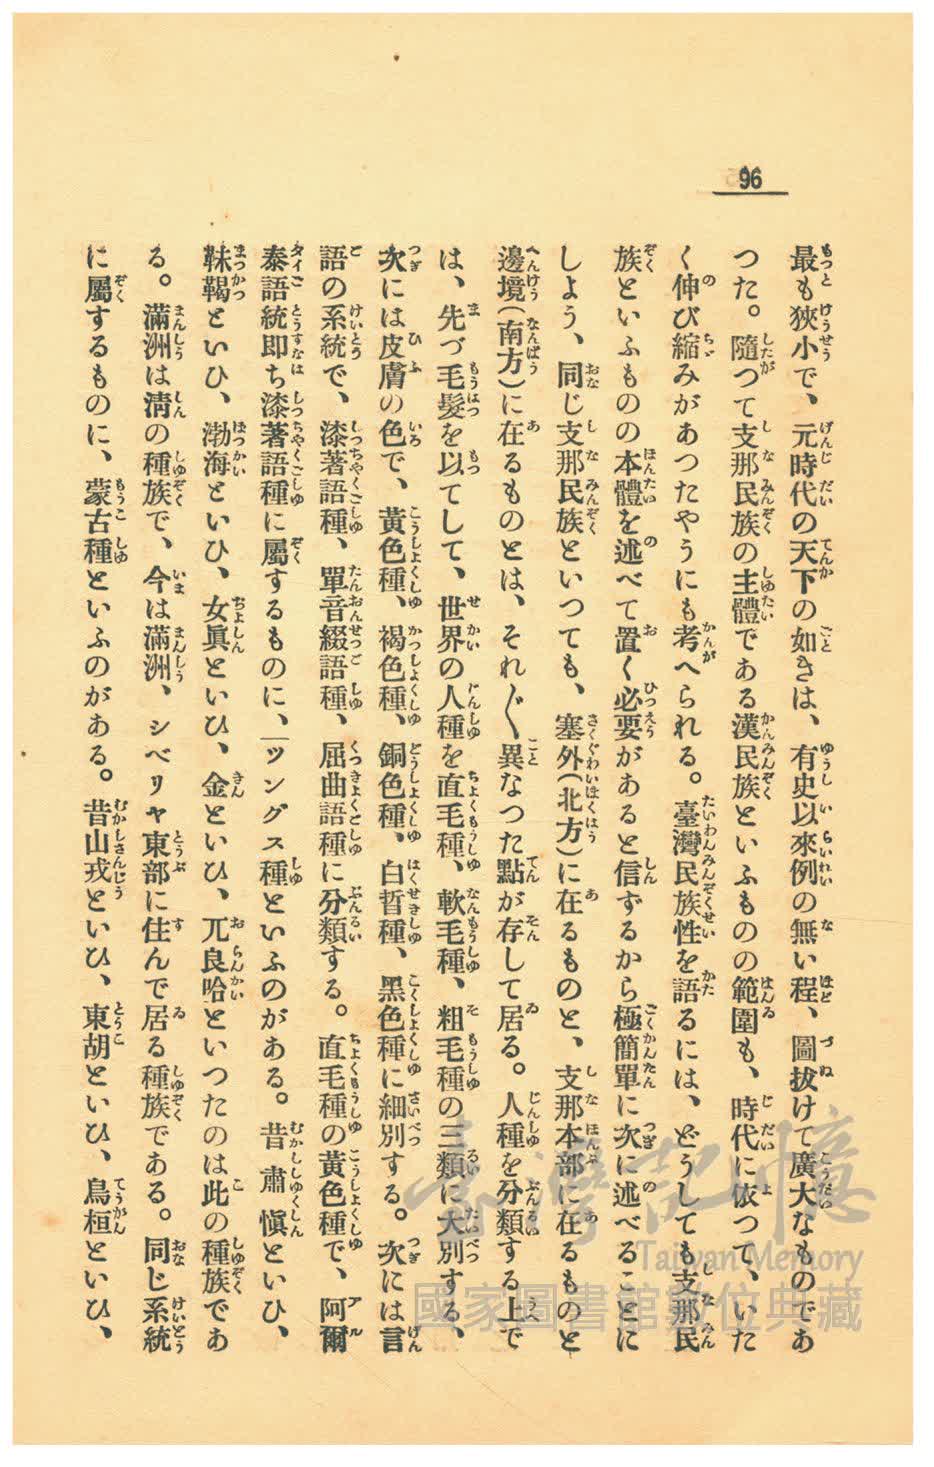 96
最も狹小で、元時代の天下の如きは、有史以來例の無い程、圖拔けて廣大なものであ
つた。隨つて支那民族の主體である漢民族といふものの範圍も、時代に依つて、いた
く伸び縮みがあつたやうにも考へられる。臺灣民族性を語るには、どうしても支那民
族といふものの本體を述べて置く必要があると信ずるから極簡單に次に述べることに
しよう、同じ支那民族といつても、塞外(北方)に在るものと、支那本部に在るものと
邊境(南方)に在るものとは、それ〴〵異なつた點が存して居る。人種を分類する上で
は、先づ毛髮を以てして、世界の人種を直毛種、軟毛種、粗毛種の三類に大別する、
次には皮膚の色で、黃色種、褐色種、銅色種、白晳種、黑色種に細別する。次には言
語の系統で、漆著語種、單音綴語種、屈曲語種に分類する。直毛種の黃色種で、阿爾
泰語統即ち漆著語種に屬するものに、ツングス種といふのがある。昔肅愼といひ、
靺鞨といひ、渤海といひ、女眞といひ、金といひ、兀良哈といつたのは此の種族であ
る。滿洲は淸の種族で、今は滿洲、シベリヤ東部に住んで居る種族である。同じ系統
に屬するものに、蒙古種といふのがある。昔山戎といひ、東胡といひ、烏桓といひ、
臺灣記憶
Taiwan Memory
國家圖書館數位典藏